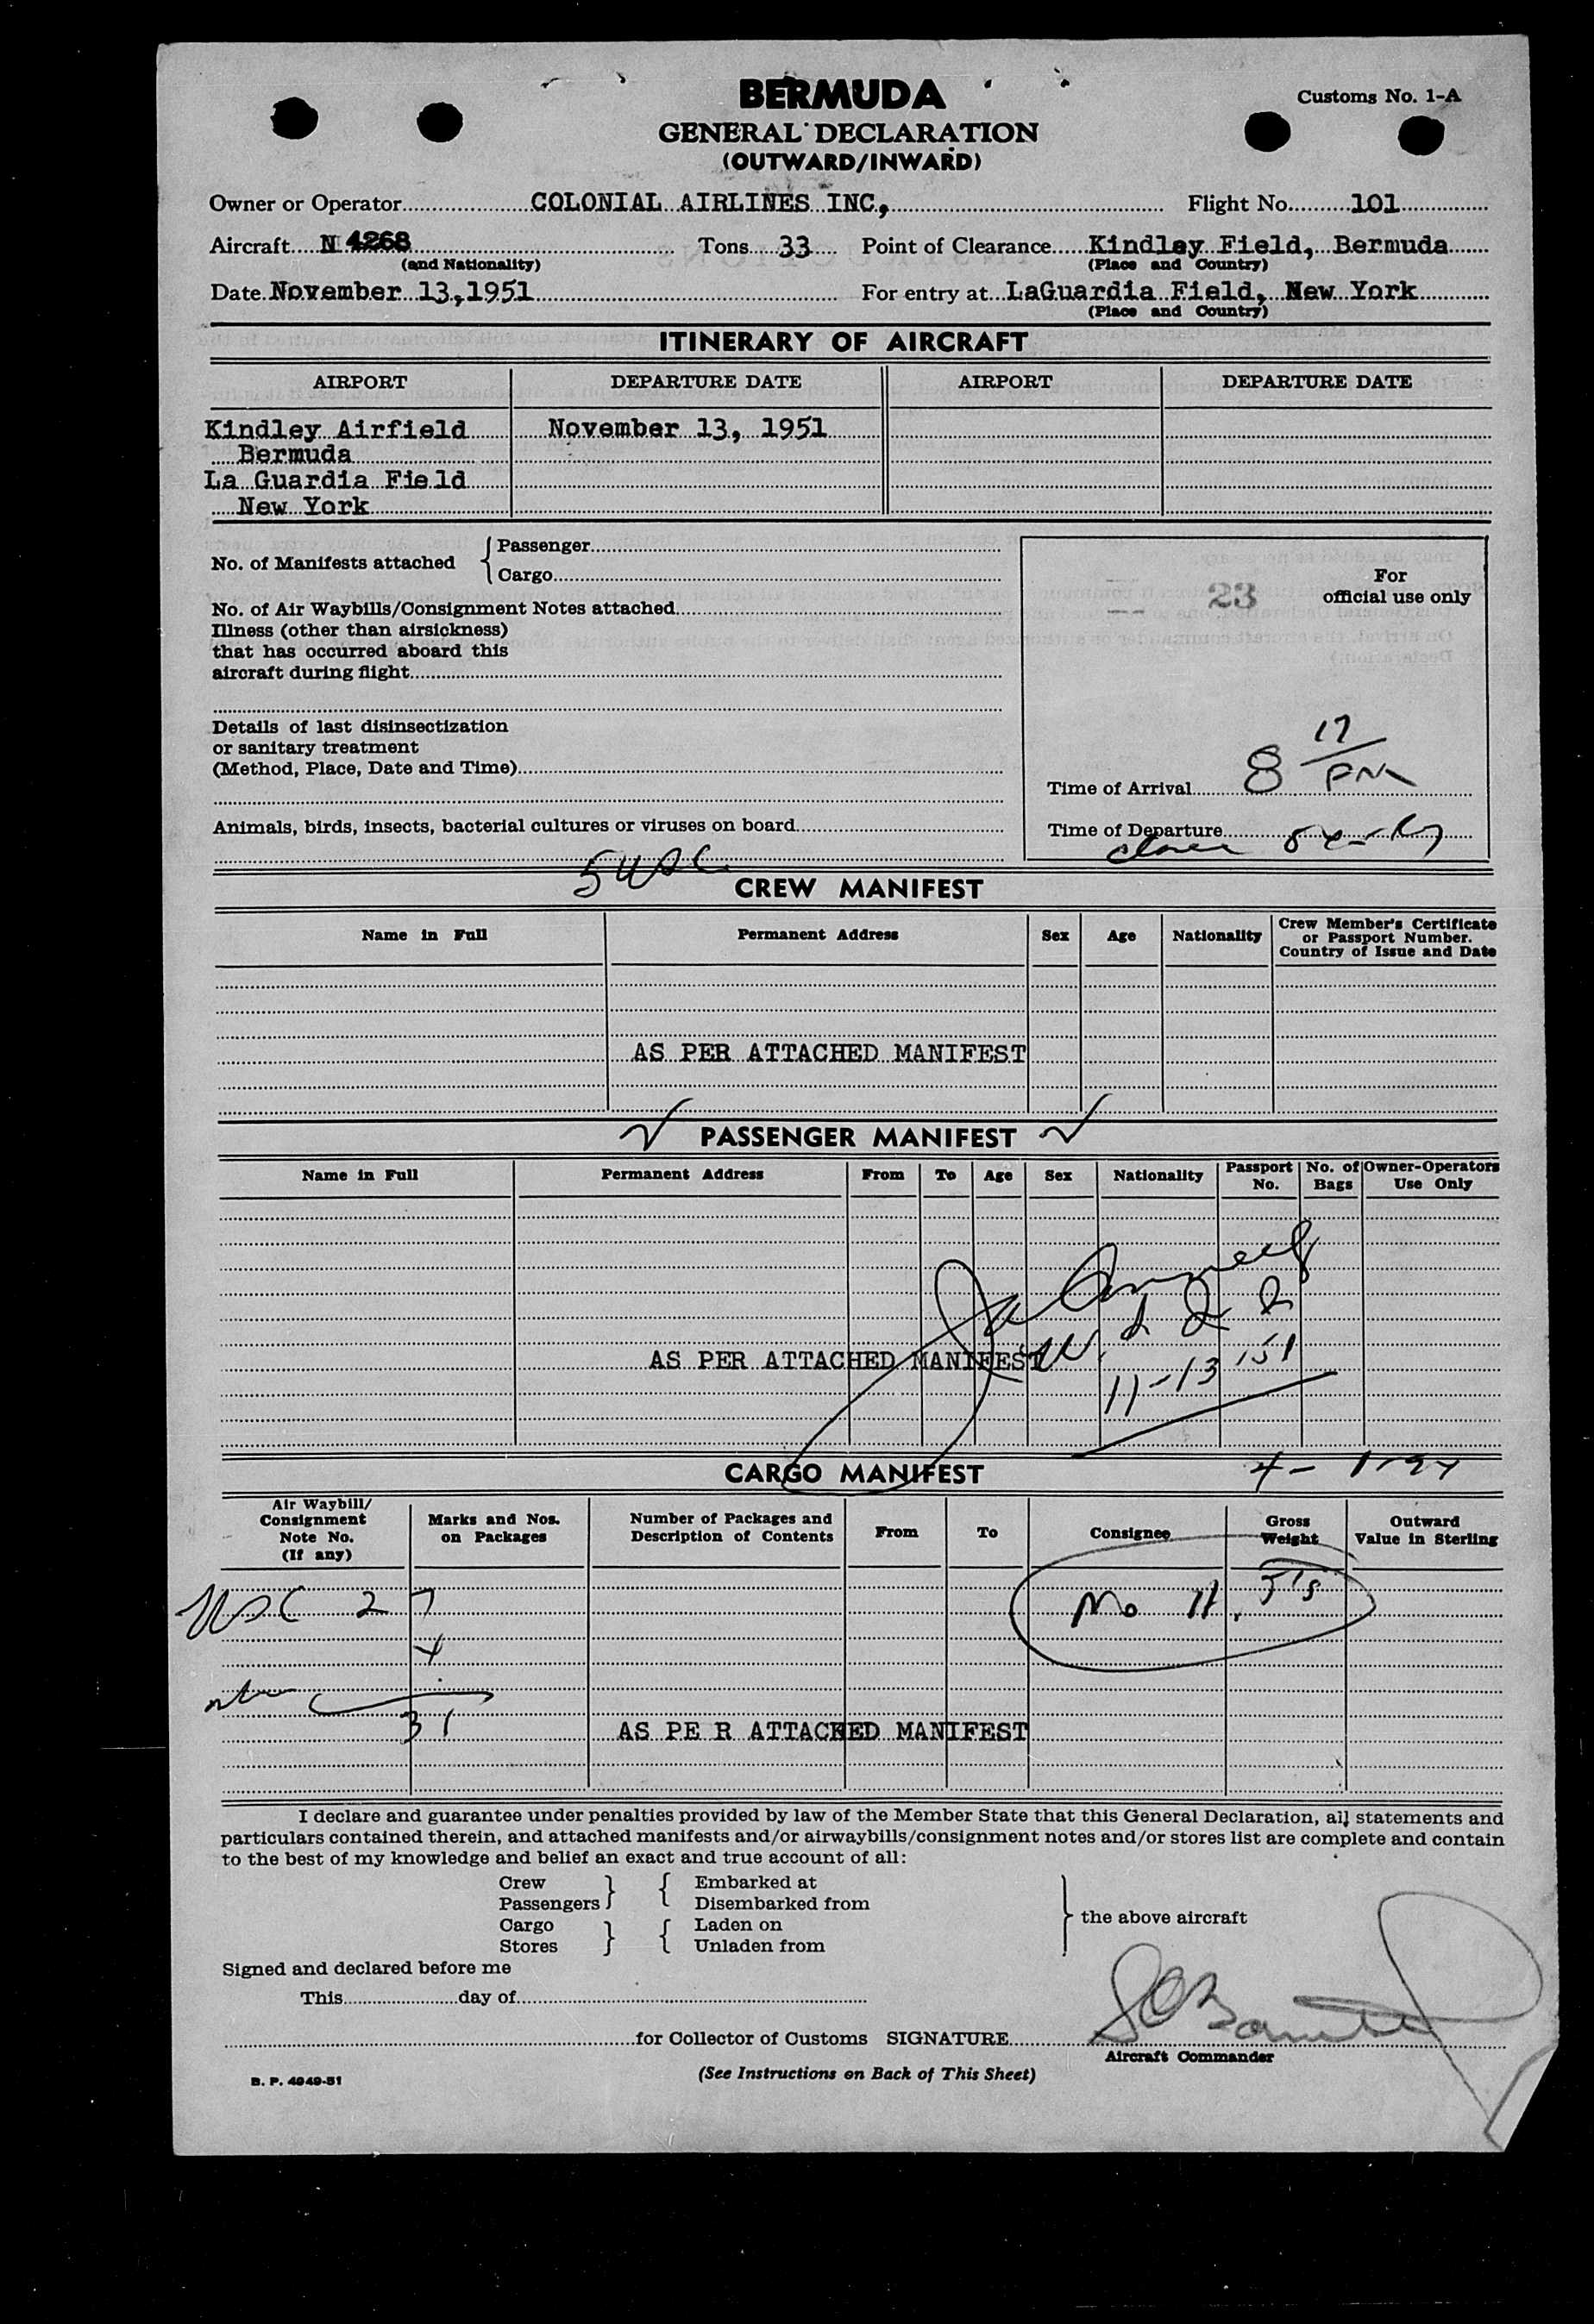 BERMUDA
Customs No. 1-A
GENERAL DECLARATION
(OUTWARD/INWARD)
Owner or Operator COLONIAL AIRLINES INC, Flight No. 101
Aircraft N 4268 Tons 33 Point of Clearance Kindley Field, Bermuda
(and Nationality) (Place and Country)
Date November 13, 1951 For entry at LaGuardia Field, New York
(Place and Country)
ITINERARY OF AIRCRAFT
AIRPORT DEPARTURE DATE AIRPORT DEPARTURE DATE
Kindley Airfield November 13, 1951
Bermuda
La Guardia Field
New York
No. of Manifests attached { Passenger
Cargo
For
official use only
23
No. of Air Waybills/Consignment Notes attached
Illness (other than airsickness)
that has occurred aboard this
aircraft during flight
Details of last disinsectization
or sanitary treatment
(Method, Place, Date and Time)
Time of Arrival 8 17/PM
Animals, birds, insects, bacterial cultures or viruses on board
Time of Departure
5 USC
CREW MANIFEST
Name in Full Permanent Address Sex Age Nationality Crew Member's Certificate
or Passport Number.
Country of Issue and Date
AS PER ATTACHED MANIFEST
PASSENGER MANIFEST
Name in Full Permanent Address From To Age Sex Nationality Passport No. No. of Bags Owner-Operators Use Only
AS PER ATTACHED MANIFEST
11-13 '51
CARGO MANIFEST
Air Waybill/
Consignment
Note No.
(If any)
Marks and Nos.
on Packages
Number of Packages and
Description of Contents
From To Consignee Gross
Weight
Outward
Value in Sterling
USC 27
4
31
AS PE R ATTACHED MANIFEST
I declare and guarantee under penalties provided by law of the Member State that this General Declaration, all statements and
particulars contained therein, and attached manifests and/or airwaybills/consignment notes and/or stores list are complete and contain
to the best of my knowledge and belief an exact and true account of all:
Crew Embarked at
Passengers } { Disembarked from
Cargo Laden on } the above aircraft
Stores } { Unladen from
Signed and declared before me
This day of
for Collector of Customs SIGNATURE
Aircraft Commander
B. P. 4949-51
(See Instructions on Back of This Sheet)